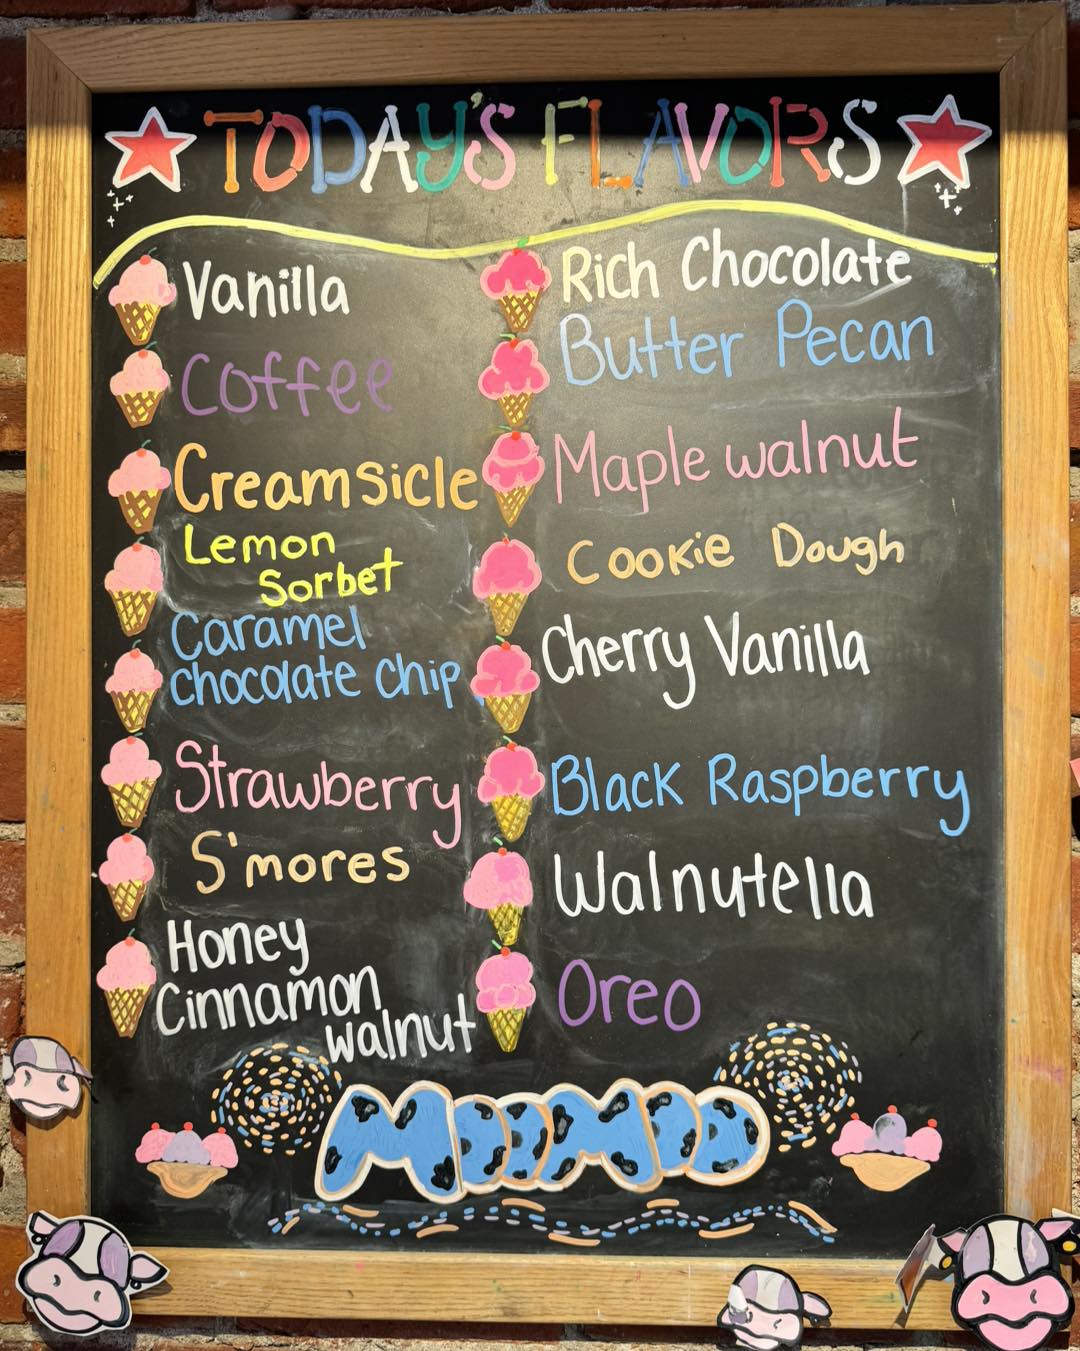 TODAY'S FLAVORS
Vanilla
Coffee
Creamsicle
Lemon
Sorbet
Caramel
chocolate chip
Strawberry
S'mores
Honey
Cinnamon
walnut
Rich Chocolate
Butter Pecan
Maple walnut
Cookie Dough
Cherry Vanilla
Black Raspberry
Walnutella
Oreo
MOOMOO